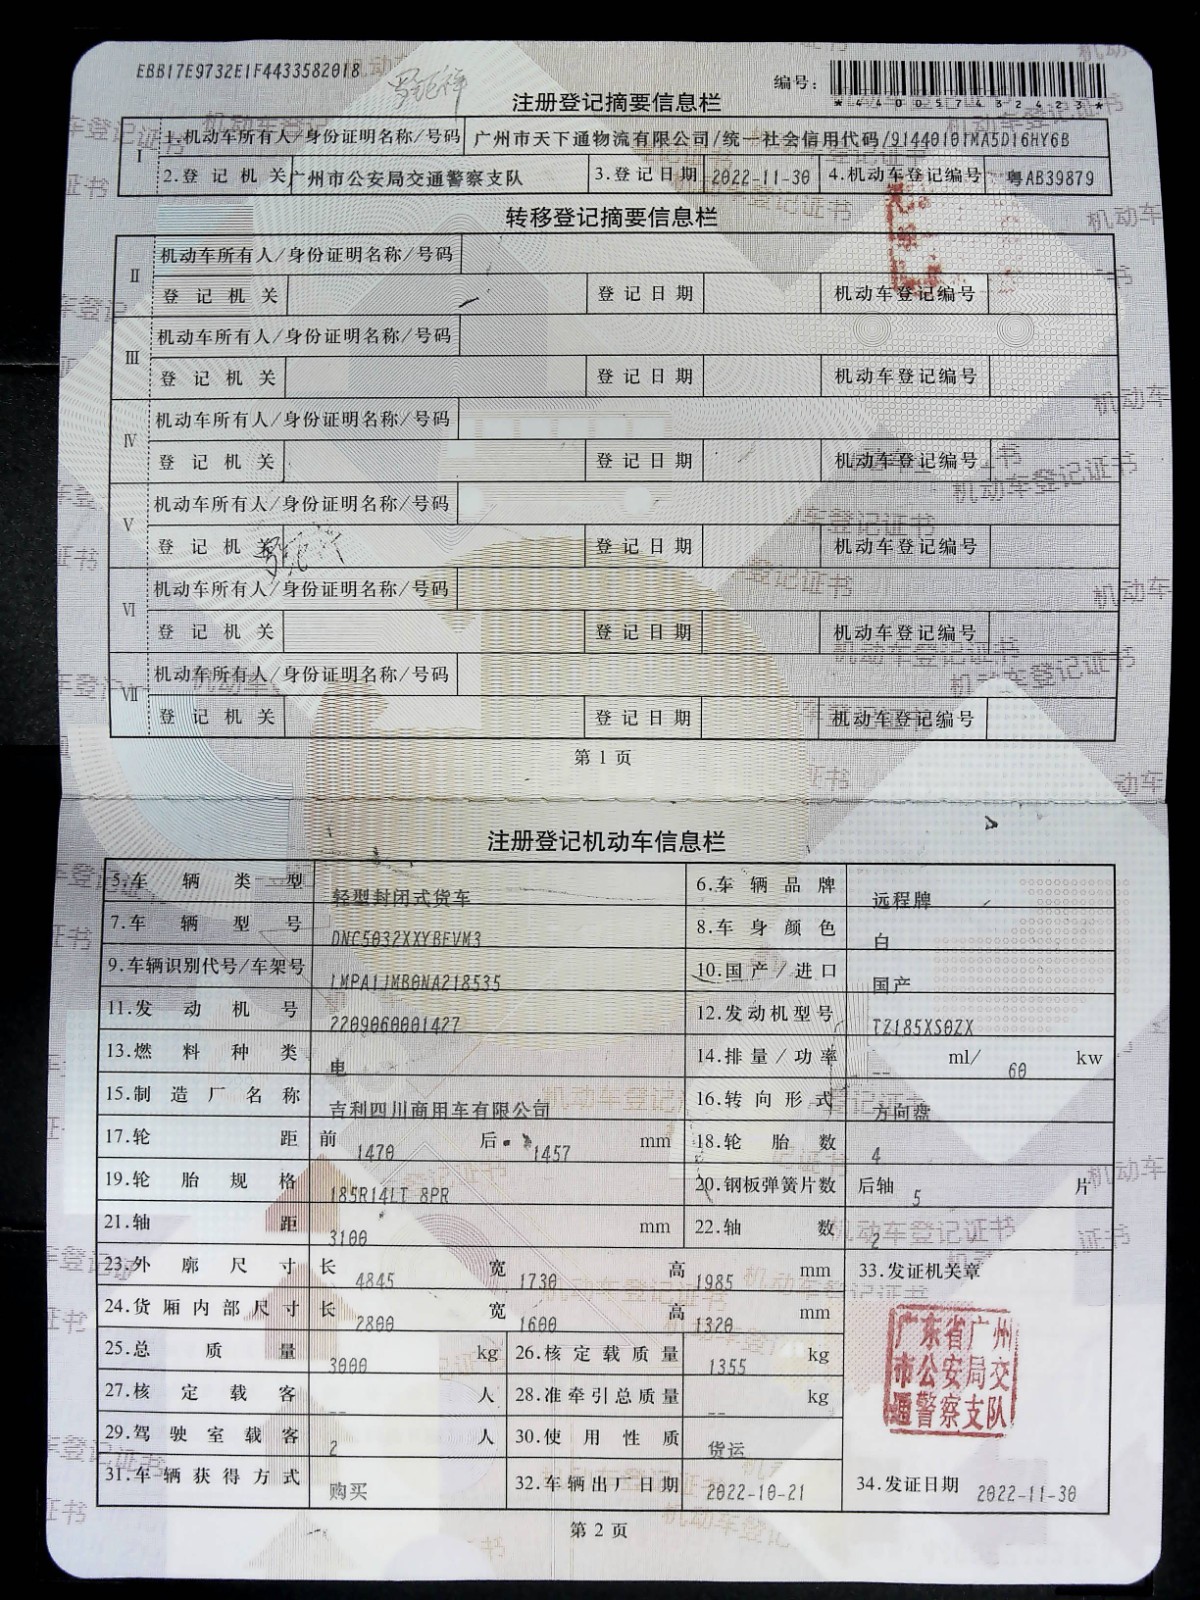 EBB17E9732E1F4433582018
编号:
*440057432423*
注册登记摘要信息栏
I 1.机动车所有人/身份证明名称/号码 广州市天下通物流有限公司/统一社会信用代码/91440101MA5D16HY6B
2.登记机关 广州市公安局交通警察支队 3.登记日期 2022-11-30 4.机动车登记编号 粤AB39879
转移登记摘要信息栏
II 机动车所有人/身份证明名称/号码
登记机关 登记日期 机动车登记编号
III 机动车所有人/身份证明名称/号码
登记机关 登记日期 机动车登记编号
IV 机动车所有人/身份证明名称/号码
登记机关 登记日期 机动车登记编号
V 机动车所有人/身份证明名称/号码
登记机关 登记日期 机动车登记编号
VI 机动车所有人/身份证明名称/号码
登记机关 登记日期 机动车登记编号
VII 机动车所有人/身份证明名称/号码
登记机关 登记日期 机动车登记编号
第1页
注册登记机动车信息栏
5.车辆类型 轻型封闭式货车 6.车辆品牌 远程牌
7.车辆型号 DNC5032XXYBEVM3 8.车身颜色 白
9.车辆识别代号/车架号 LMPA1JMB0NA218535 10.国产/进口 国产
11.发动机号 2209060001427 12.发动机型号 TZ185XS0ZX
13.燃料种类 电 14.排量/功率 -- ml/ 60 kw
15.制造厂名称 吉利四川商用车有限公司 16.转向形式 方向盘
17.轮距 前 1470 后 1457 mm 18.轮胎数 4
19.轮胎规格 185R14LT 8PR 20.钢板弹簧片数 后轴 5 片
21.轴距 3100 mm 22.轴数 2
23.外廓尺寸 长 4845 宽 1730 高 1985 mm 33.发证机关章
24.货厢内部尺寸 长 2800 宽 1600 高 1320 mm
广东省广州
市公安局交
通警察支队
25.总质量 3000 kg 26.核定载质量 1355 kg
27.核定载客 -- 人 28.准牵引总质量 -- kg
29.驾驶室载客 2 人 30.使用性质 货运
31.车辆获得方式 购买 32.车辆出厂日期 2022-10-21 34.发证日期 2022-11-30
第2页